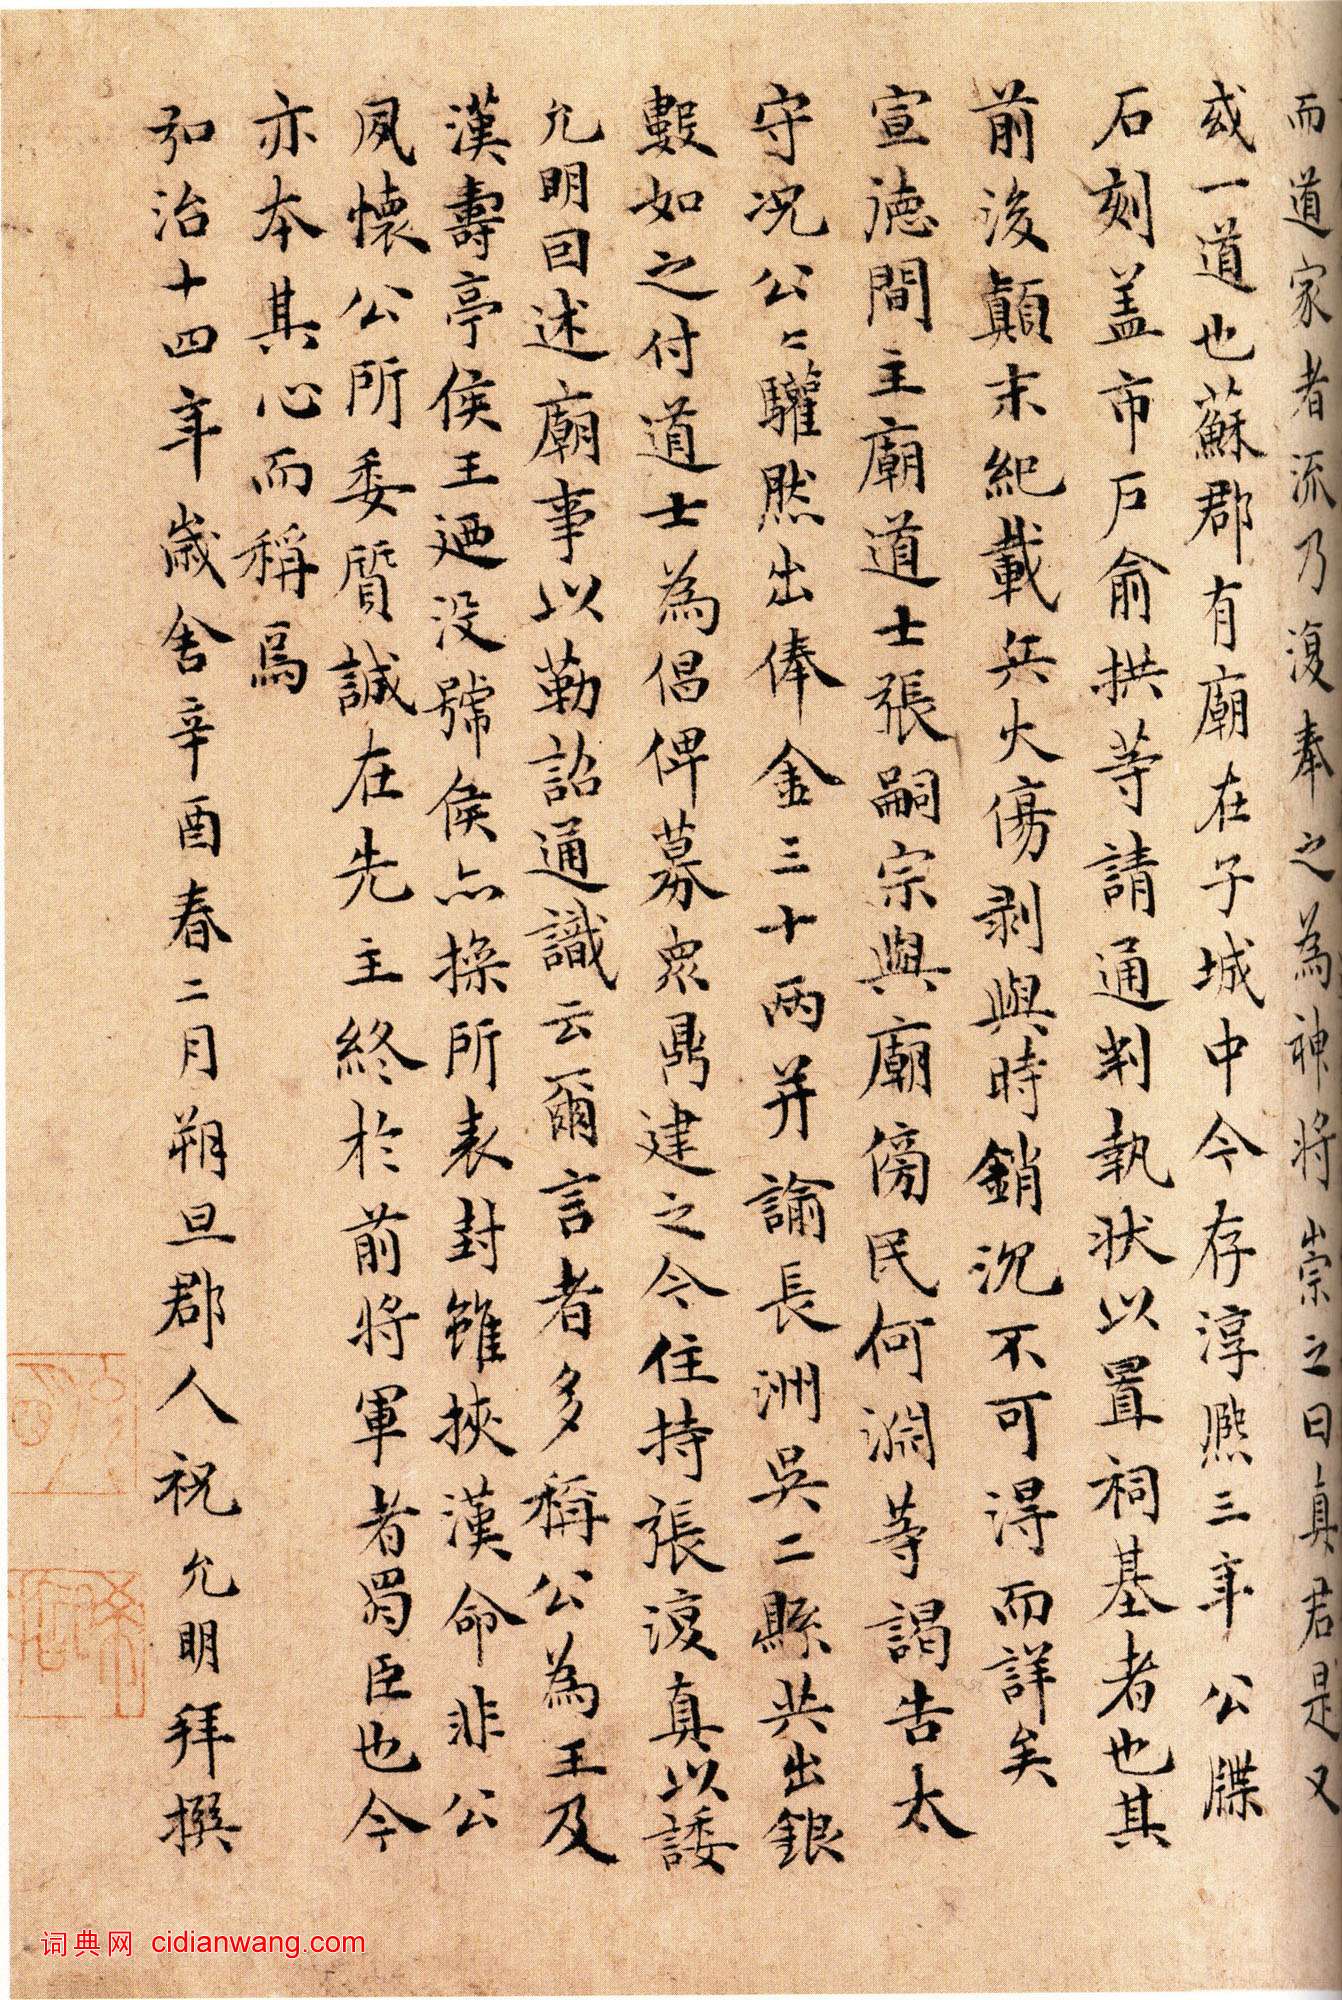 而道家者流乃復奉之為神將崇之曰真君是又
或一道也蘇郡有廟在子城中今存淳熙三年公牒
石刻盖市戶俞拱等請通判執狀以置祠基者也其
前後顛末紀載兵火傷剥與時銷沉不可得而詳矣
宣徳間主廟道士張嗣宗與廟傍民何淵等謁告太
守况公〻驩然出俸金三十兩并諭長洲吳二縣共出銀
數如之付道士為倡俾募衆鼎建之今住持張復真以諉
允明囙述廟事以勒詔通識云爾言者多稱公為王及
漢壽亭侯王廼没號侯亦操所表封雖挾漢命非公
夙懷公所委質誠在先主終於前將軍者蜀臣也今
亦本其心而稱焉
弘治十四年歲舍辛酉春二月朔旦郡人祝允明拜撰
词典网 cidianwang.com